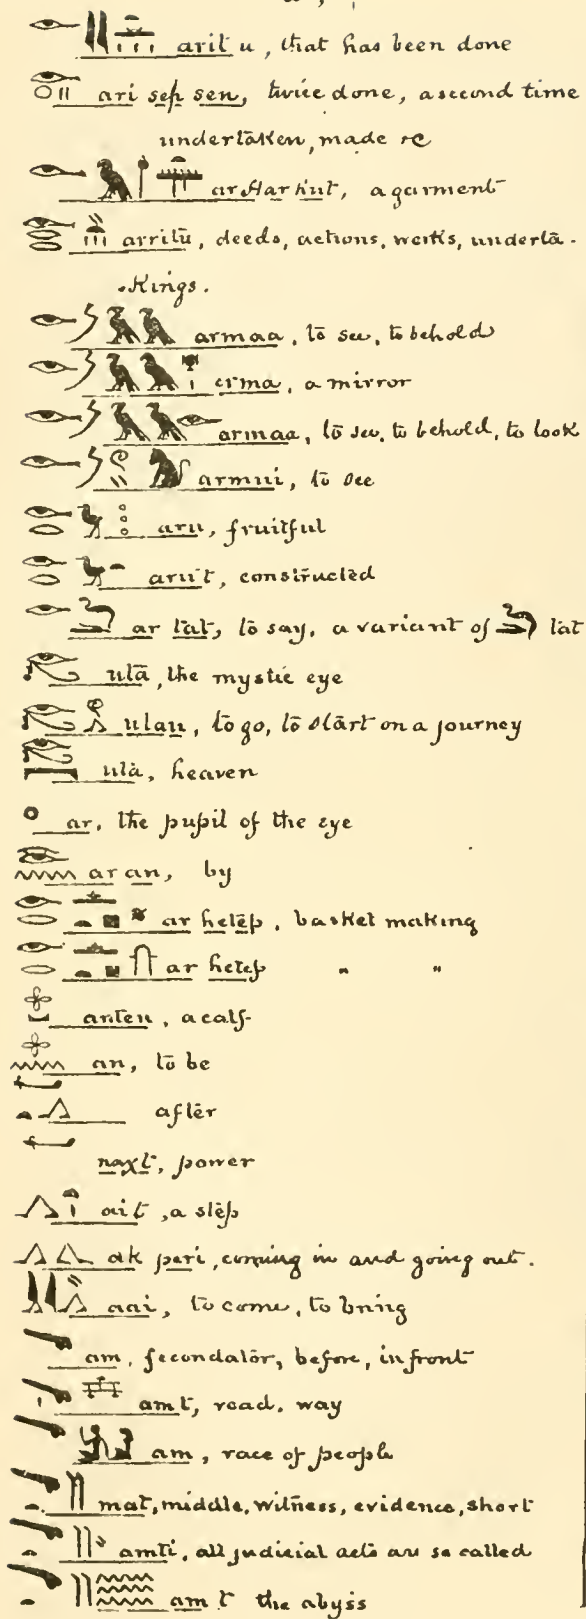 arit u, that has been done
ari sep sen, twice done, a second time
undertaken, made &c
a garment
arritū, deeds, actions, works, undertā-
kings.
armaa, to see, to behold
erma, a mirror
armaa, to see, to behold, to look
armui, to see
aru, fruitful
aru t, constructed
ar tat, to say, a variant of tat
utā, the mystic eye
utau, to go, to start on a journey
utā, heaven
ar, the pupil of the eye
ar an, by
ar hetep, basket making
ar hetep " "
anten, a calf
an, to be
after
naχt, power
ait, a step
ak peri, coming in and going out.
aai, to come, to bring
am, fecondator, before, in front
am t, road, way
am, race of people
mat, middle, witness, evidence, short
amti, all judicial acts are so called
am t the abyss